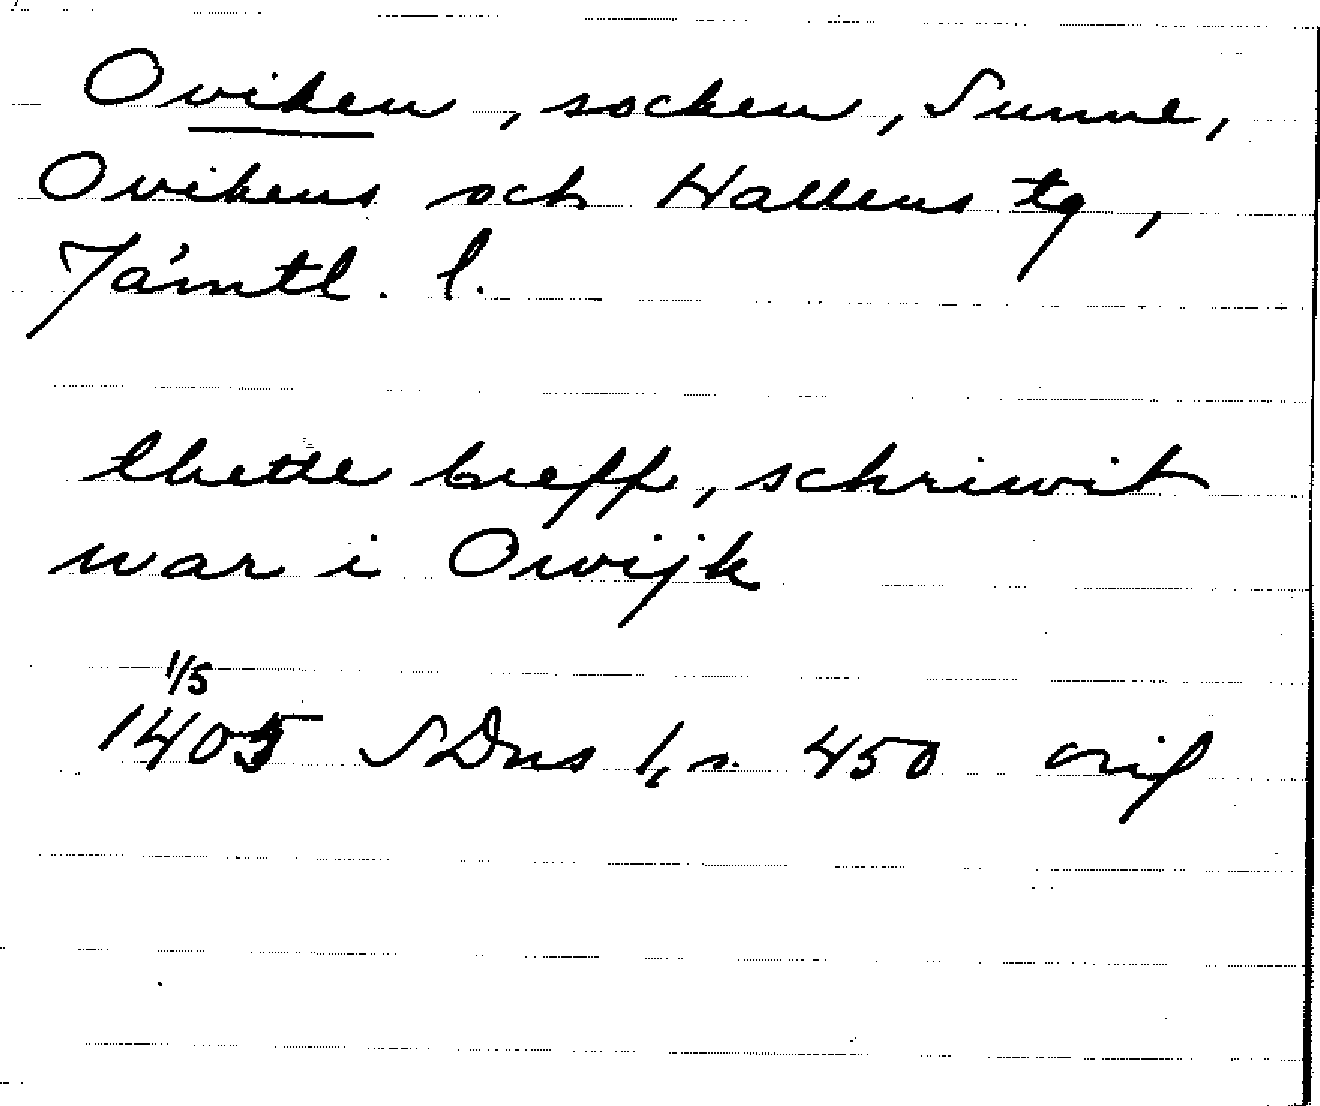 Oviken, socken, Sunne,
Ovikens och Hallens tg,
Jämtl. l.
thette breff, schriwit
war i Owijk
1/5
1405 SDns 1, s. 450 orig